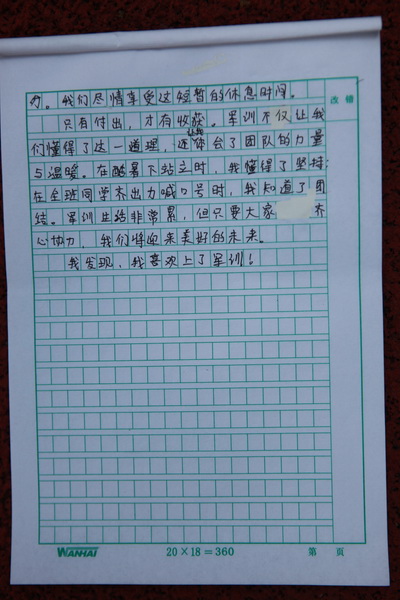 力。我们尽情享受这短暂的休息时间。
只有付出，才有收获。军训不仅让我
们懂得了这一道理，还让我体会了团队的力量
与温暖。在酷暑下站立时，我懂得了坚持；
在全班同学齐出力喊口号时，我知道了团
结。军训生活非常累，但只要大家 齐
心协力，我们将迎来美好的未来。
我发现，我喜欢上了军训！
改 错
WANHAI
20×18=360
第 页